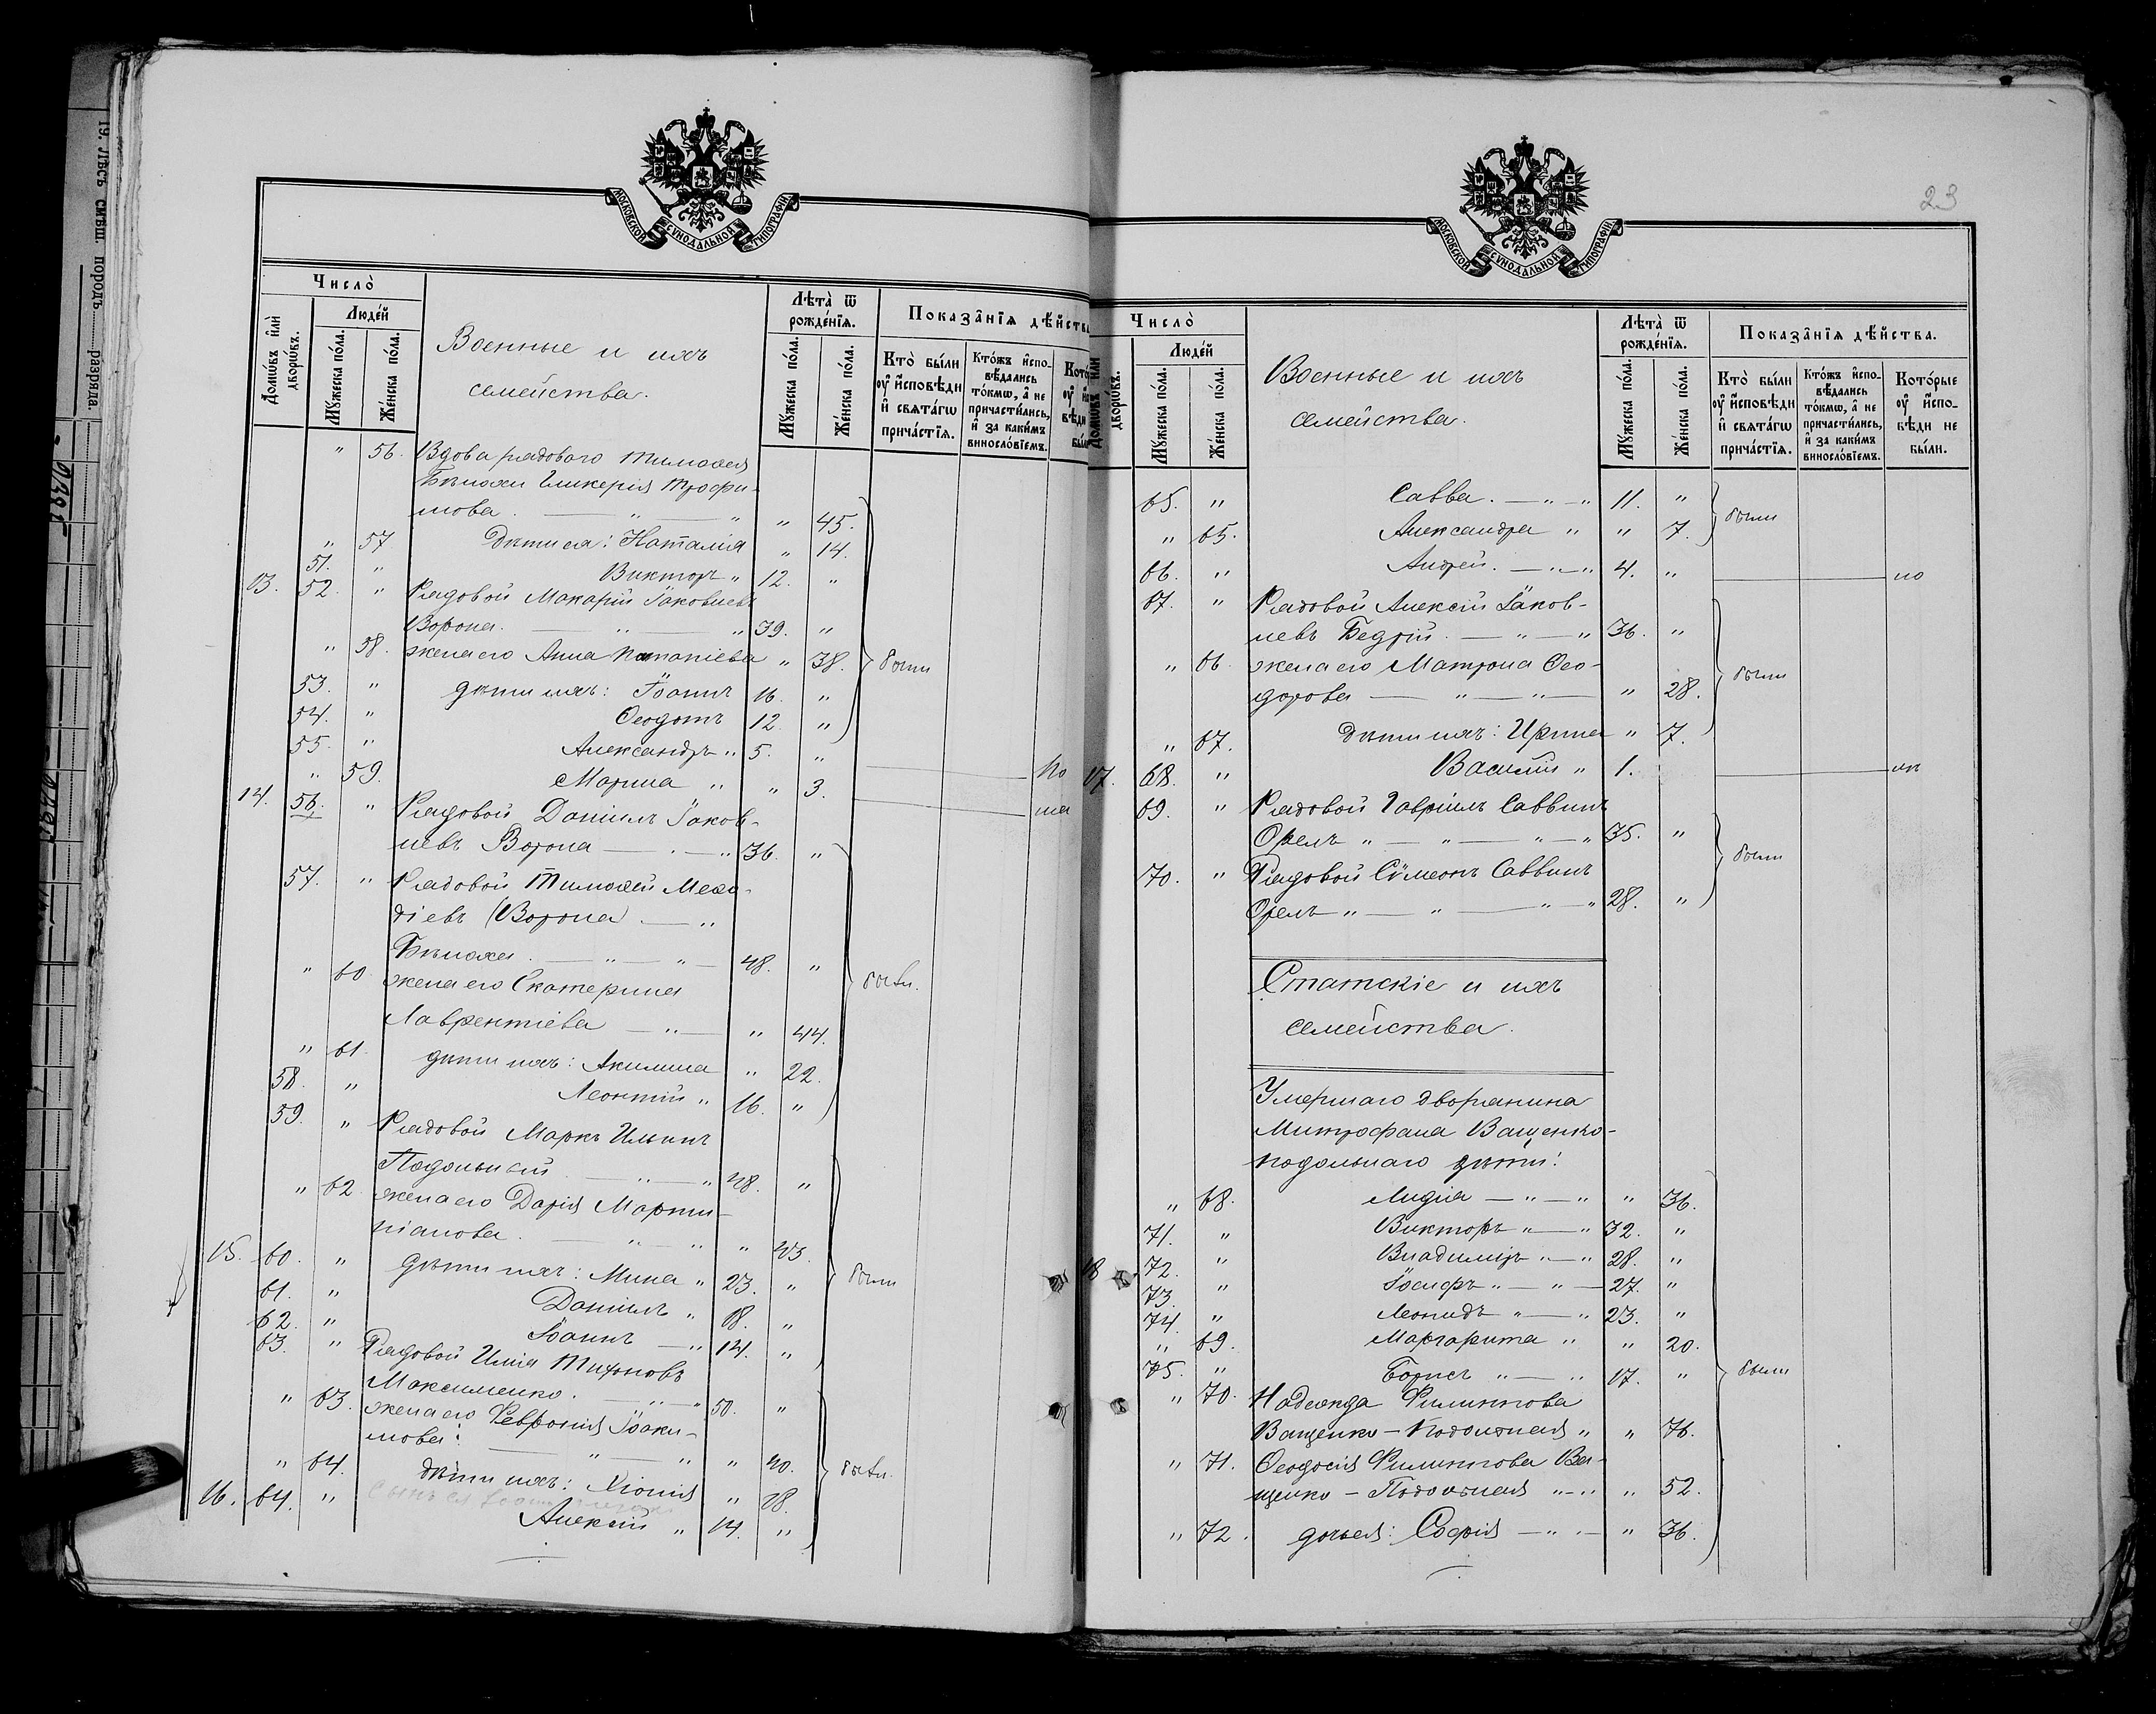 19. Лѣсъ смѣш. породъ разряда.
МОСКОВСКОЙ СУНОДАЛЬНОЙ ТИПОГРАФІИ
Число̀
Домѡвъ и҆лѝ дворѡвъ.
Люде́й
Мꙋ́жеска по́ла.
Же́нска по́ла.
Военные и ихъ
семейства.
Лѣта̀ ѿ рожде́нїѧ.
Мꙋ́жеска по́ла.
Же́нска по́ла.
Показа̂нїѧ дѣ́йства
Кто̀ бы́ли ᲂу҆ и҆сповѣ́ди и҆ свѧта́гѡ прича́стїѧ.
Кто́жъ и҆спо-вѣ́дались то́кмѡ, а҆ не причасти́лись, и҆ за каки́мъ виносло́вїемъ.
" 56. Вдова рядового Тимофея
Бѣлохи Гликерія Трофи-
мова. — " — " " 45.
" 57 Дѣти ея: Наталія " 14.
51. " Викторъ " 12. "
13. 52. " Рядовой Макарій Іаковлевъ
Ворона. — " — " 39. "
" 58. жена его Анна Потапіева " 38. были
53. " дѣти ихъ: Іоаннъ 16. "
54. " Ѳеодотъ 12 "
55. " Александръ " 5. "
" 59. Марина " " 3. по
14. 56. " Рядовой Даніилъ Іаков-
левъ Ворона — . — " 36. "
57. " Рядовой Тимофей Меѳо-
діевъ (Ворона) — "
Бѣлоха. — " — " — 48. "
" 60 жена его Екатерина были.
Лаврентіева — " — " 44.
" 61. дѣти ихъ: Акилина " 22.
58. " Леонтій " 16. "
59. " Рядовой Маркъ Ильинъ
Подольный — " — " 48. "
" 62 жена его Дарія Марти-
ніанова. — " " " 43.
15. 60. " Дѣти ихъ: Мина " 23. " были
61. " Даніилъ " 18. "
62. " Іоаннъ — " 14. "
63. " Рядовой Илія Тихоновъ
Максименко. — " — " 50. "
" 63. жена его Февронія Іоаки-
мова: — " — " " 40. были.
" 64. дѣти ихъ: Хіонія " 18.
16. 64. " Алексій " 14. "
23
МОСКОВСКОЙ СУНОДАЛЬНОЙ ТИПОГРАФІИ
Число̀
Домѡвъ и҆лѝ дворѡвъ.
Люде́й
Мꙋ́жеска по́ла.
Же́нска по́ла.
Военные и ихъ
семейства.
Лѣта̀ ѿ рожде́нїѧ.
Мꙋ́жеска по́ла.
Же́нска по́ла.
Показа̂нїѧ дѣ́йства.
Кто̀ бы́ли ᲂу҆ и҆сповѣ́ди и҆ свѧта́гѡ прича́стїѧ.
Кто́жъ и҆спо-вѣ́дались то́кмѡ, а҆ не причасти́лись, и҆ за каки́мъ виносло́вїемъ.
Кото́рые ᲂу҆ и҆спо-вѣ́ди не бы́ли.
65. " Савва. — " — " 11. "
" 65. Александра " " 7. были
66. " Андрей. — " — " 4. " по
67. " Рядовой Алексій Іаков-
левъ Бедрій. — " — " 36. "
" 66 жена его Матрона Ѳео- были
дорова — " — " — " 28.
" 67. дѣти ихъ: Ирина " 7.
17. 68. " Василій " 1.
69. " Рядовой Гавріилъ Саввинъ
Орелъ " — " — " — " 35. "
70. " Рядовой Сѵмеонъ Саввинъ были
Орелъ " — " — " — " 28. "
Статскіе и ихъ
семейства.
Умершаго дворянина
Митрофана Ващенко-
подольнаго дѣти:
" 68. Лидія — " — " " 36.
71. " Викторъ " — " 32. "
18 72. " Владиміръ " — " 28. "
73. " Іосифъ " — " — 27. "
74. " Леонидъ " — " 23. "
" 69. Маргарита " " 20.
75. " Борисъ " — " 17. " были
" 70. Надежда Филиппова
Ващенко-Подольная " " 76.
" 71. Ѳеодосія Филиппова Ва-
щенко-Подольная " — " " 52.
" 72. дочь ея: Софія — " — " 36.